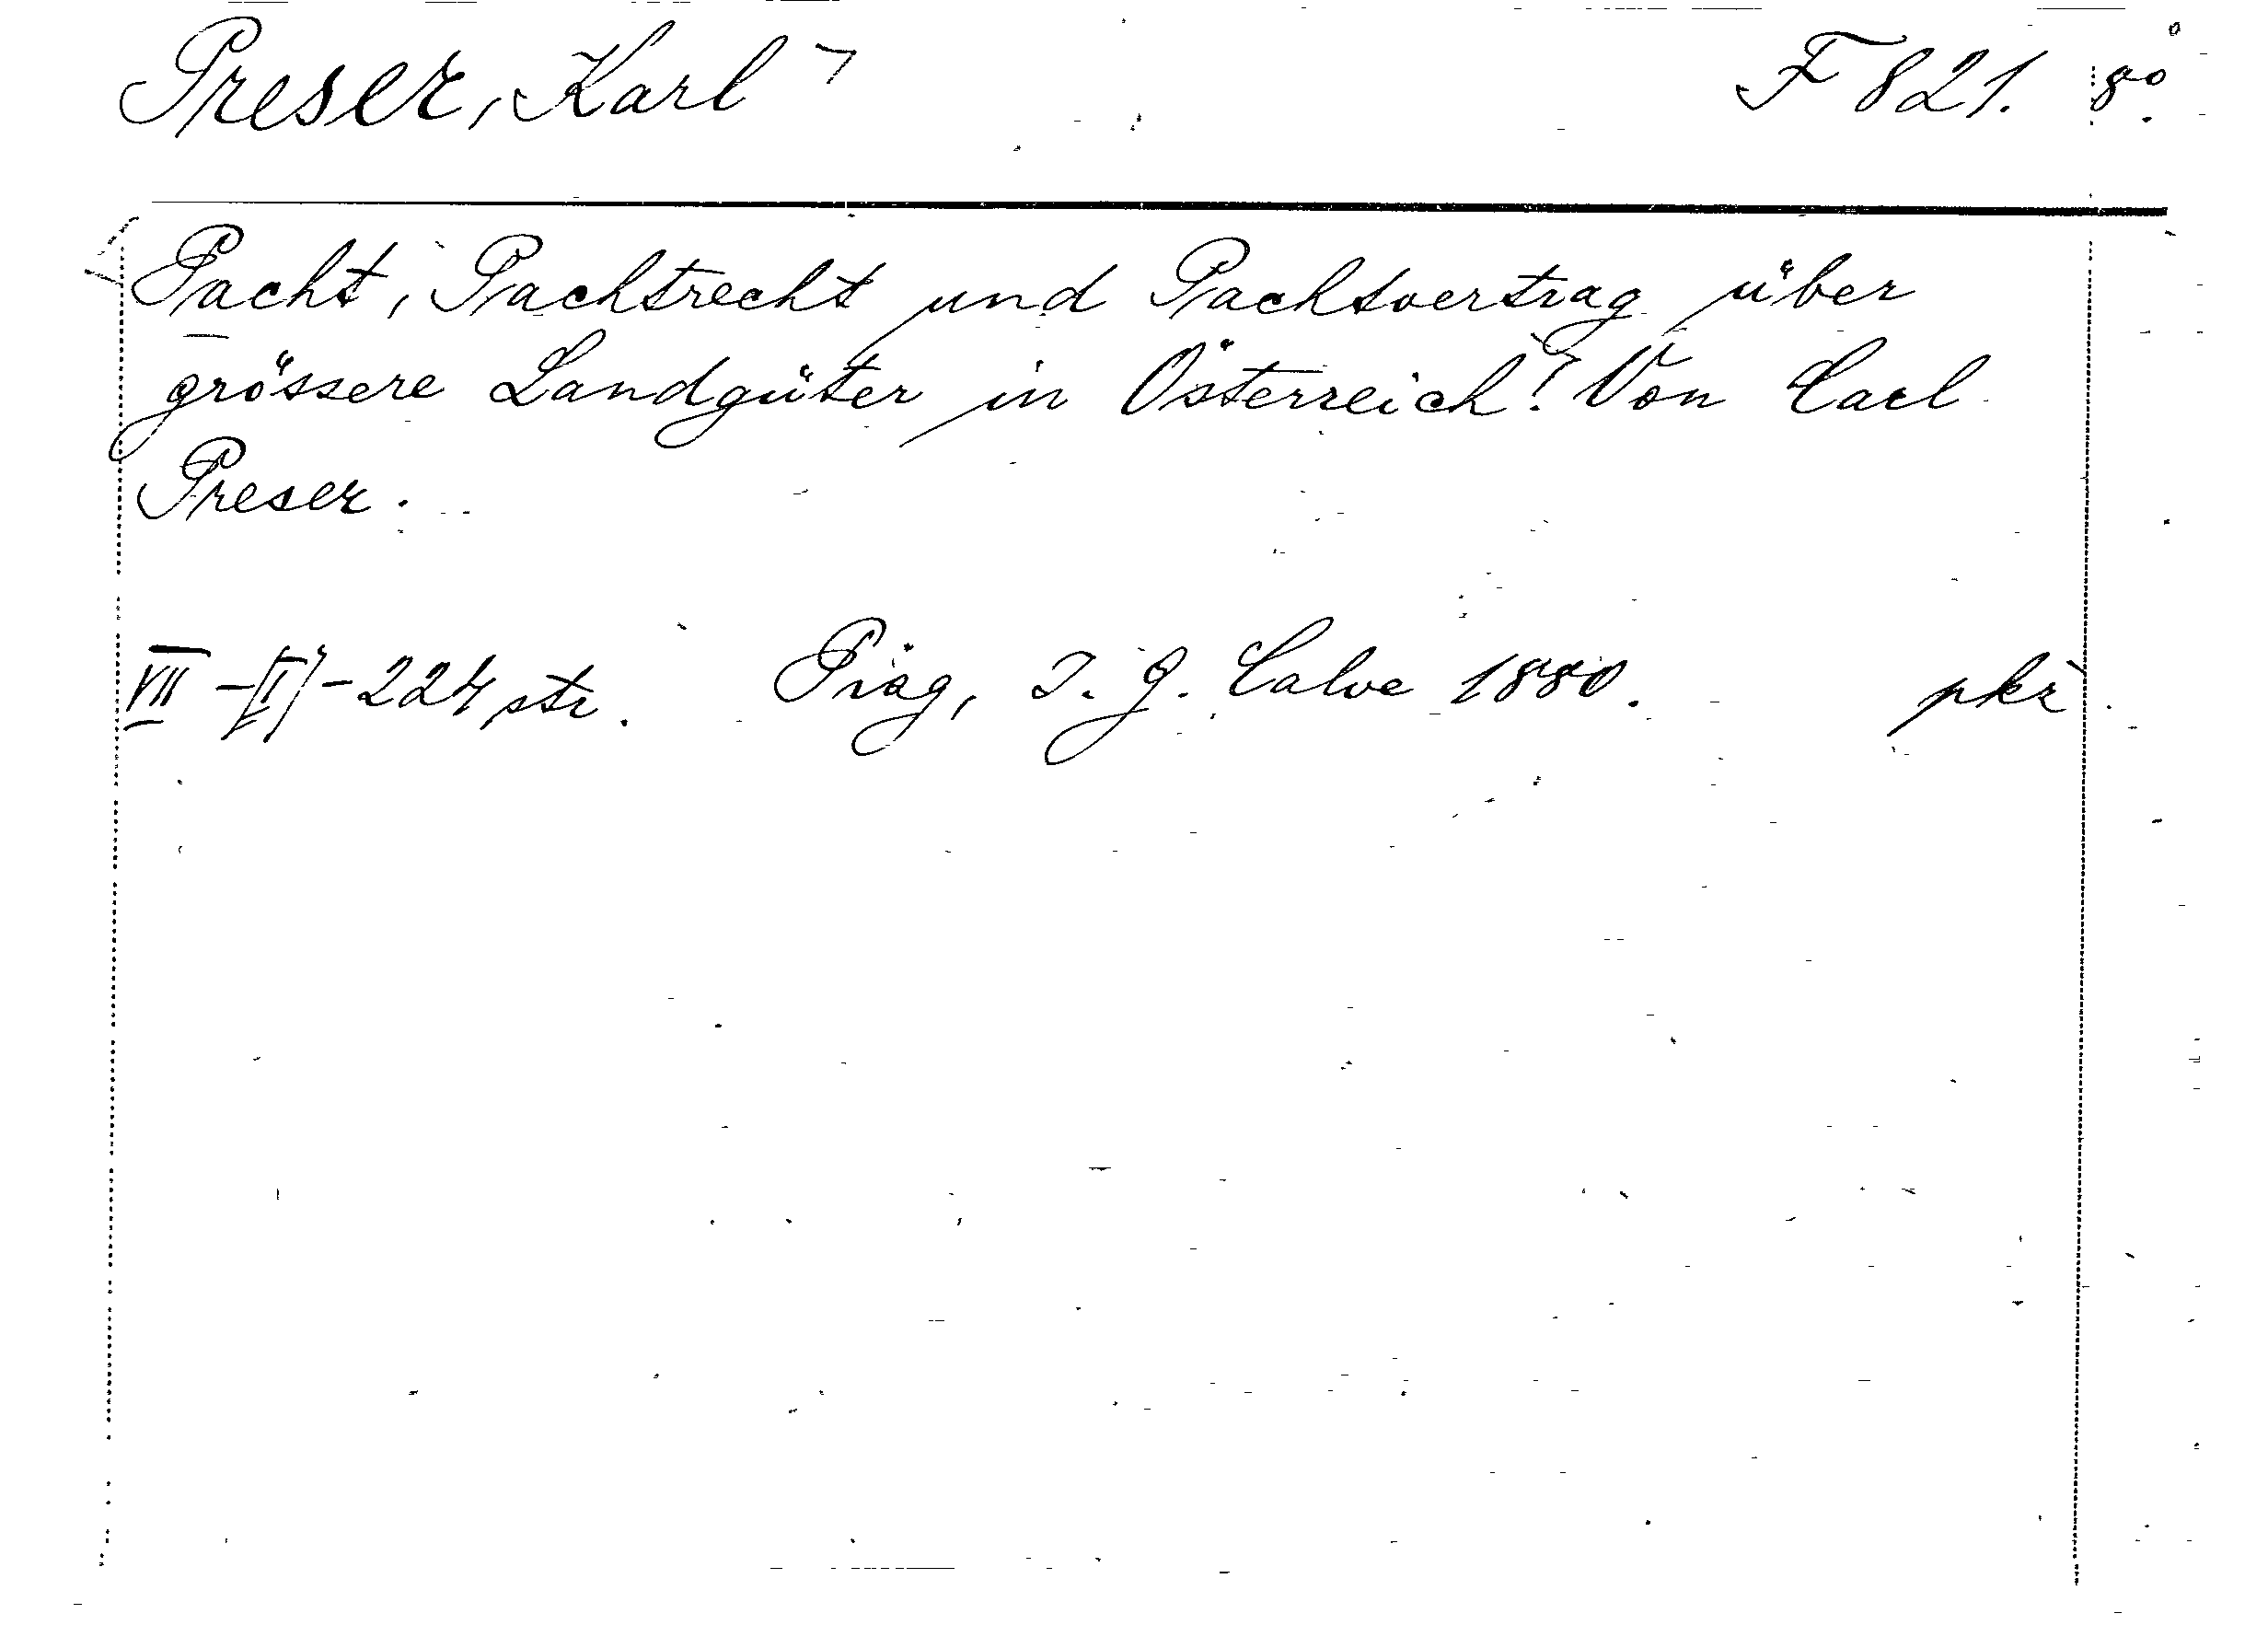 Preser, Karl F 821. 8°.
Pacht, Pachtrecht und Pachtvertrag über
grössere Landgüter in Österreich! Von Carl
Preser.
VII -[I]- 224 str. Prag, J. G. Calve 1880. pkž.